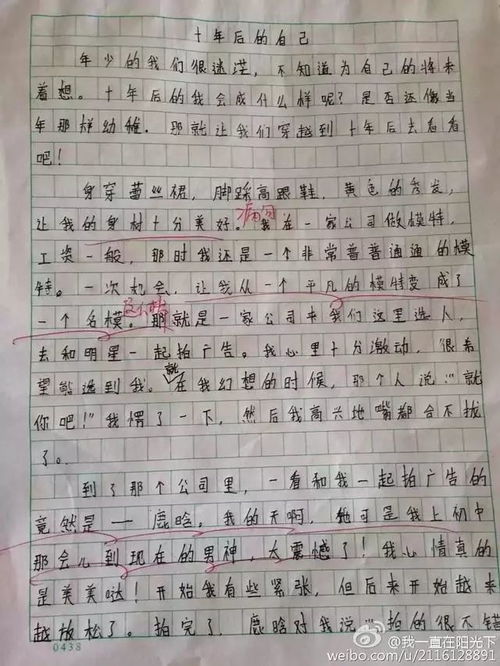 十年后的自己
年少的我们很迷茫，不知道为自己的将来
着想。十年后的我会成什么样呢？是否还像当
年那样幼稚。那就让我们穿越到十年后去看看
吧！
身穿蕾丝裙，脚踩高跟鞋，黄色的秀发，
让我的身材十分美好。我在一家公司做模特，
病句
工资一般，那时我还是一个非常普普通通的模
特。一次机会，让我从一个平凡的模特变成了
一个名模。那就是一家公司来我们这里选人，
去和明星一起拍广告。我心里十分激动，很希
望能选到我。就在我幻想的时候，那个人说："就
你吧！"我愣了一下，然后我高兴地嘴都合不拢
了。
到了那个公司里，一看和我一起拍广告的
竟然是——鹿晗。我的天啊，他可是我上初中
那会儿到现在的男神，太震憾了！我心情真的
是美美哒！开始我有些紧张，但后来开始越来
越放松了。拍完了，鹿晗对我说："拍的很不错
0438
@我一直在阳光下
weibo.com/u/2116128891